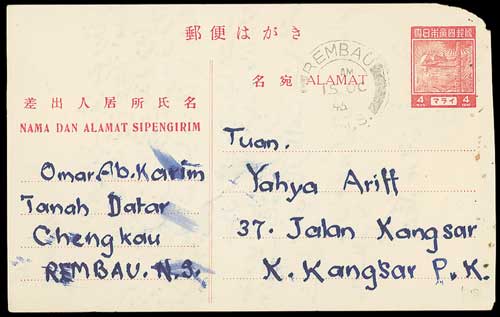 郵便はがき
大日本帝國郵便
4 マライ 4
REMBAU
AM
15 OC
N.S.
名宛 ALAMAT
差出人居所氏名
NAMA DAN ALAMAT SIPENGIRIM
Omar Ab. Karim
Tanah Datar
Chengkau
REMBAU. N.S.
Tuan.
Yahya Ariff
37. Jalan Kangsar
K. Kangsar P.K.